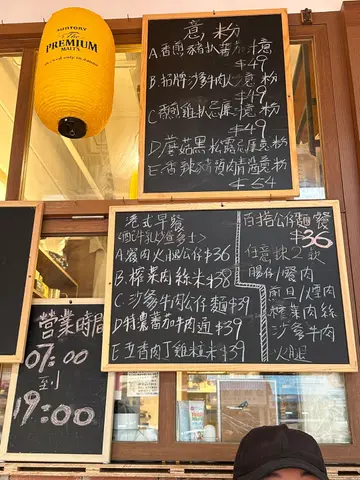 SUNTORY
The
PREMIUM
MALT'S
意粉
A香煎豬扒蕃茄意
$49
B.招牌沙爹牛肉炒意粉
$49
C香煎雞扒忌廉意粉
$49
D蘑菇黑松露忌廉意粉
E香辣豬頸肉青醬意粉
$54
港式早餐
(配牛油多士)
A.餐肉火腿公仔$36
B.榨菜肉絲米$38
C.沙爹牛肉公仔麵$39
D特濃蕃茄牛肉通$39
E五香肉丁雞粒米$39
百搭公仔麵餐
$36
任意揀2款
腸仔/餐肉
煎旦/煙肉
榨菜肉絲
沙爹牛肉
火腿
營業時間
07:00
到
19:00